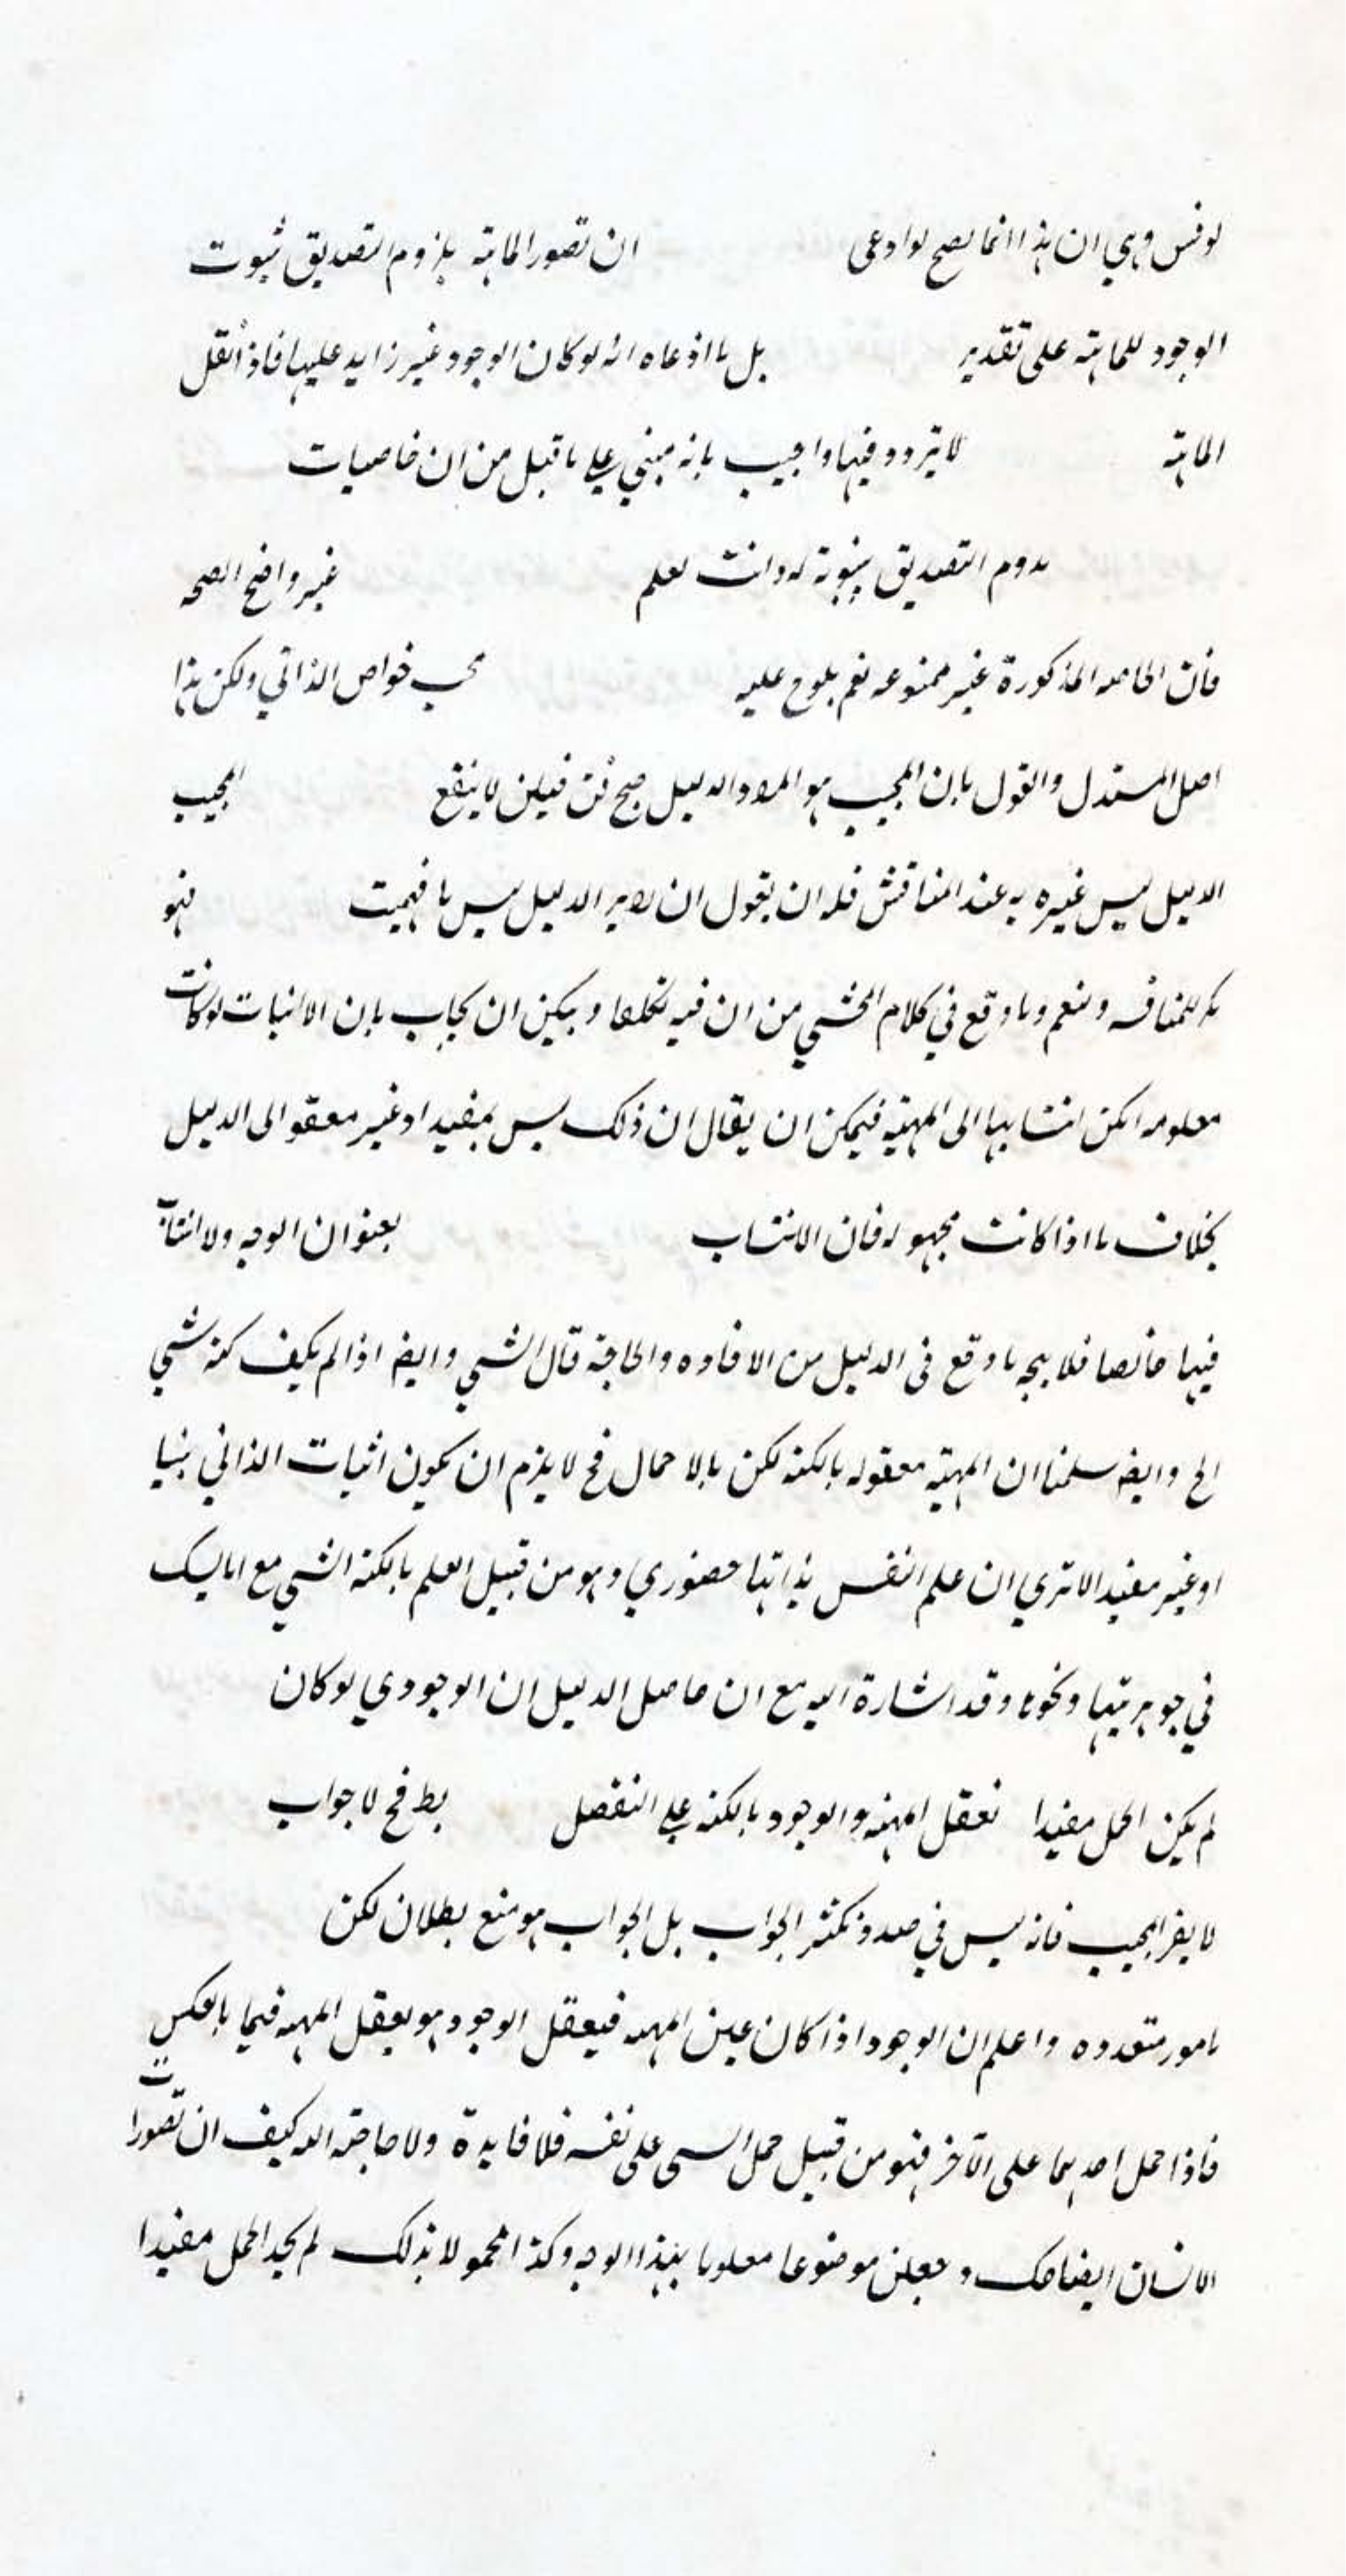 لونس وهي ان هذا انما يصح لو ادعى ان تصور الماهية يلزوم التصديق ثبوت
الوجود للماهية على تقدير بل ما ادعاه انه لو كان الوجود غير زايد عليها فاذا تعقل
الماهية لا يتردد فيها واجيب بانه مبني على ما قبل من ان خاصيات
دوم التصديق بثبوته له وانت تعلم غير واضح الصحه
فان الخاصه المذكورة غير ممنوعه نعم يلوح عليه خواص الذاتي ولكن هذا
اصل المستدل والقول بان المجيب هو الدليل لا ينفع المجيب
الدليل ليس غيره به عند المناقش فله ان يقول ان الدليل ليس ما فهمت فهو
ومنعم وما وقع في كلام المحشي من ان فيه تكلفا ويمكن ان يجاب بان الاثبات لو كانت
معلومه امكن انتسابها الى المهية فيمكن ان يقال ان ذلك ليس بمفيد او غير معقو الى الدليل
بخلاف ما اذا كانت مجهوله فان الانتساب بعنوان الوجه ولا
فيها خالصا فلا يتجه ما وقع في الدليل من الافاده والحاجة قال المشي وايضا اذا لم يكف كنه شي
الخ وايضا سلمنا ان المهية معقوله بالكنه لكن بالاجمال فح لا يلزم ان يكون اثبات الذاتي بينا
او غير مفيد الا تري ان علم النفس بذاتها حضوري وهو من قبيل العلم بالكنه الشي مع
في جوهريتها ونحوها وقد اشارة اليه مع ان حاصل الدليل ان الوجودي لو كان
لم يكن الحمل مفيدا تعقل المهية والوجود بالكنه على التفصل بط فح لا جواب
لا يضر المجيب فانه ليس في صدد تكثر الجواب بل الجواب هو منع بطلان لكن
بامور متعدده واعلم ان الوجود اذا كان عين المهيه فيعقل الوجود هو يعقل المهيه فيما بالعكس
فاذا حمل احدهما على الآخر فهو من قبيل حمل الشي على نفسه فلا فايدة ولا حاجة اليه كيف ان تصورات
الانسان الضاحك وجعلن موضوعا معلوما بهذا الوجه وكذا محمولا بذلك لم يجد الحمل مفيدا